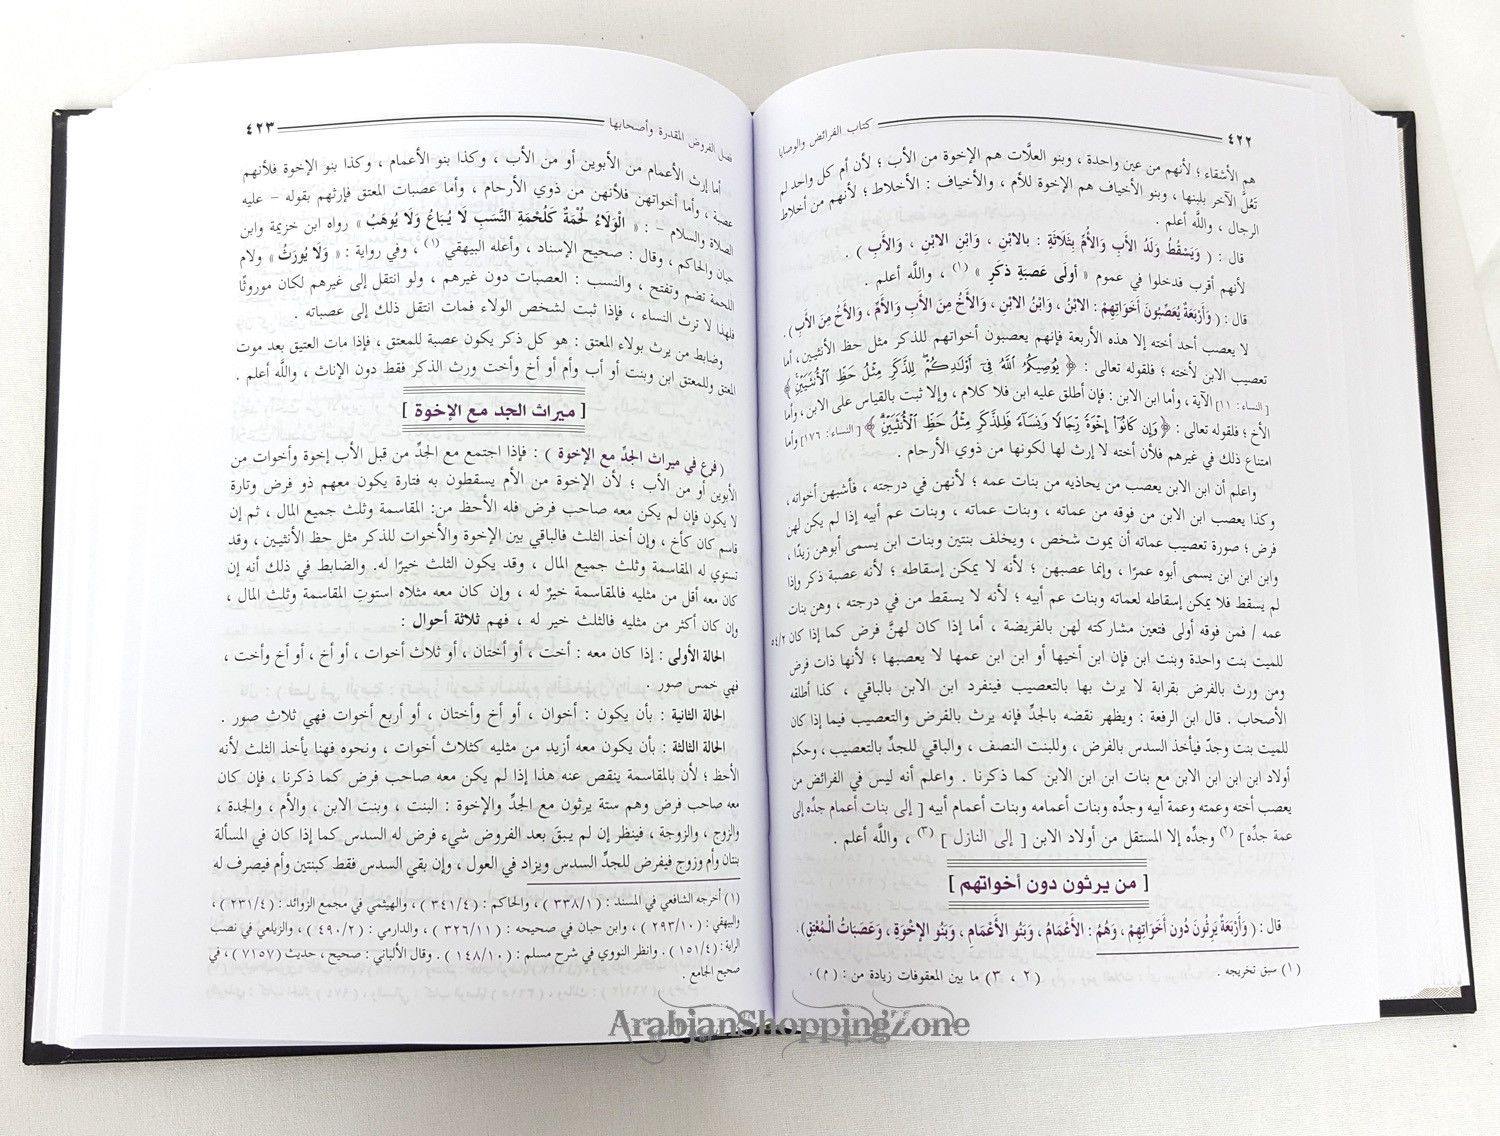 ٤٢٢ كتاب الفرائض والوصايا
هم الأشقاء ؛ لأنهم من عين واحدة ، وبنو العلَّات هم الإخوة من الأب ؛ لأن أم كل واحد لم
تَعُلَّ الآخر بلبنها ، وبنو الأخياف هم الإخوة للأم ، والأخياف : الأخلاط ؛ لأنهم من أخلاط
الرجال ، واللَّه أعلم .
قال : ( وَيَسْقُطُ وَلَدُ الأَبِ وَالأُمِّ بِثَلَاثَةٍ : بالابْنِ ، وَابْنِ الابْنِ ، وَالأَبِ ) .
لأنهم أقرب فدخلوا في عموم « أولَى عَصبَةِ ذكَرٍ » (١) ، واللَّه أعلم .
قال : ( وَأَرْبَعَةٌ يُعَصِّبُونَ أَخَوَاتِهِمْ : الابْنُ ، وَابْنُ الابْنِ ، وَالأَخُ مِنَ الأَبِ وَالأُمِّ ، وَالأَخُ مِنَ الأَبِ ) .
لا يعصب أحد أخته إلا هذه الأربعة فإنهم يعصبون أخواتهم للذكر مثل حظ الأنثيين ، أما
تعصيب الابن لأخته ؛ فلقوله تعالى : ﴿ يُوصِيكُمُ ٱللَّهُ فِىٓ أَوْلَٰدِكُمْ لِلذَّكَرِ مِثْلُ حَظِّ ٱلْأُنثَيَيْنِ ﴾
[ النساء : ١١ ] الآية ، وأما ابن الابن : فإن أطلق عليه ابن فلا كلام ، وإلا ثبت بالقياس على الابن ، وأما
الأخ ؛ فلقوله تعالى : ﴿ وَإِن كَانُوٓا۟ إِخْوَةً رِّجَالًا وَنِسَآءً فَلِلذَّكَرِ مِثْلُ حَظِّ ٱلْأُنثَيَيْنِ ﴾ [ النساء : ١٧٦ ] وأما
امتناع ذلك في غيرهم فلأن أخته لا إرث لها لكونها من ذوي الأرحام .
واعلم أن ابن الابن يعصب من يحاذيه من بنات عمه ؛ لأنهن في درجته ، فأشبهن أخواته ،
وكذا يعصب ابن الابن من فوقه من عماته ، وبنات عماته ، وبنات عم أبيه إذا لم يكن لهن
فرض ؛ صورة تعصيب عماته أن يموت شخص ، ويخلف بنتين وبنات ابن يسمى أبوهن زيدًا ،
وابن ابن ابن يسمى أبوه عمرًا ، وإنما عصبهن ؛ لأنه لا يمكن إسقاطه ؛ لأنه عصبة ذكر وإذا
لم يسقط فلا يمكن إسقاطه لعماته وبنات عم أبيه ؛ لأنه لا يسقط من في درجته ، وهن بنات
عمه / فمن فوقه أولى فتعين مشاركته لهن بالفريضة ، أما إذا كان لهنَّ فرض كما إذا كان ٥٤/٢
للميت بنت واحدة وبنت ابن فإن ابن أخيها أو ابن ابن عمها لا يعصبها ؛ لأنها ذات فرض
ومن ورث بالفرض بقرابة لا يرث بها بالتعصيب فينفرد ابن الابن بالباقي ، كذا أطلقه
الأصحاب . قال ابن الرفعة : ويظهر نقضه بالجدِّ فإنه يرث بالفرض والتعصيب فيما إذا كان
للميت بنت وجدّ فيأخذ السدس بالفرض ، وللبنت النصف ، والباقي للجدِّ بالتعصيب ، وحكم
أولاد ابن ابن الابن مع بنات ابن ابن الابن كما ذكرنا . واعلم أنه ليس في الفرائض من
يعصب أخته وعمته وعمة أبيه وجدِّه وبنات أعمامه وبنات أعمام أبيه [ إلى بنات أعمام جدِّه إلى
عمة جدِّه ] (٢) وجدِّه إلا المستقل من أولاد الابن [ إلى النازل ] (٣) ، واللَّه أعلم .
[ من يرثون دون أخواتهم ]
قال : ( وَأَرْبَعَةٌ يَرِثُونَ دُونَ أَخَوَاتِهِمْ ، وَهُمُ : الأَعْمَامُ ، وَبَنُو الأَعْمَامِ ، وَبَنُو الإِخْوَةِ ، وَعَصَبَاتُ الْمُعْتِقِ ) .
(١) سبق تخريجه . (٢ ، ٣) ما بين المعقوفات زيادة من : (م) .
فصل الفروض المقدرة وأصحابها ٤٢٣
أما إرث الأعمام من الأبوين أو من الأب ، وكذا بنو الأعمام ، وكذا بنو الإخوة فلأنهم
عصبة ، وأما أخواتهن فلأنهن من ذوي الأرحام ، وأما عصبات المعتق فإرثهم بقوله – عليه
الصلاة والسلام – : « الْوَلَاءُ لُحْمَةٌ كَلُحْمَةِ النَّسَبِ لَا يُبَاعُ وَلَا يُوهَبُ » رواه ابن خزيمة وابن
حبان والحاكم ، وقال : صحيح الإسناد ، وأعله البيهقي (١) ، وفي رواية : « وَلَا يُورَثُ » ولام
اللحمة تضم وتفتح ، والنسب : العصبات دون غيرهم ، ولو انتقل إلى غيرهم لكان موروثًا
فلهذا لا ترث النساء ، فإذا ثبت لشخص الولاء فمات انتقل ذلك إلى عصباته .
وضابط من يرث بولاء المعتق : هو كل ذكر يكون عصبة للمعتق ، فإذا مات العتيق بعد موت
المعتق وللمعتق ابن وبنت أو أب وأم أو أخ وأخت ورث الذكر فقط دون الإناث ، واللَّه أعلم .
[ ميراث الجد مع الإخوة ]
( فرع في ميراث الجدِّ مع الإخوة ) : فإذا اجتمع مع الجدِّ من قبل الأب إخوة وأخوات من
الأبوين أو من الأب ؛ لأن الإخوة من الأم يسقطون به فتارة يكون معهم ذو فرض وتارة
لا يكون فإن لم يكن معه صاحب فرض فله الأحظ من : المقاسمة وثلث جميع المال ، ثم إن
قاسم كان كأخ ، وإن أخذ الثلث فالباقي بين الإخوة والأخوات للذكر مثل حظ الأنثيين ، وقد
تستوي له المقاسمة وثلث جميع المال ، وقد يكون الثلث خيرًا له. والضابط في ذلك أنه إن
كان معه أقل من مثليه فالمقاسمة خيرٌ له ، وإن كان معه مثلاه استوتِ المقاسمة وثلث المال ،
وإن كان أكثر من مثليه فالثلث خير له ، فهم ثلاثة أحوال :
الحالة الأولى : إذا كان معه : أخت ، أو أختان ، أو ثلاث أخوات ، أو أخ ، أو أخ وأخت ،
فهي خمس صور .
الحالة الثانية : بأن يكون : أخوان ، أو أخ وأختان ، أو أربع أخوات فهي ثلاث صور .
الحالة الثالثة : بأن يكون معه أزيد من مثليه كثلاث أخوات ، ونحوه فهنا يأخذ الثلث لأنه
الأحظ ؛ لأن بالمقاسمة ينقص عنه هذا إذا لم يكن معه صاحب فرض كما ذكرنا ، فإن كان
معه صاحب فرض وهم ستة يرثون مع الجدِّ والإخوة : البنت ، وبنت الابن ، والأم ، والجدة ،
والزوج ، والزوجة ، فينظر إن لم يبقَ بعد الفروض شيء فرض له السدس كما إذا كان في المسألة
بنتان وأم وزوج فيفرض للجدِّ السدس ويزاد في العول ، وإن بقي السدس فقط كبنتين وأم فيصرف له
(١) أخرجه الشافعي في المسند : ( ٣٣٨/١ ) ، والحاكم : ( ٣٤١/٤ ) ، والهيثمي في مجمع الزوائد : ( ٢٣١/٤ ) ،
والبيهقي : ( ٢٩٣/١٠ ) ، وابن حبان في صحيحه : ( ٣٢٦/١١ ) ، والدارمي : ( ٤٩٠/٢ ) ، والزيلعي في نصب
الراية : ( ١٥١/٤ ) . وانظر النووي في شرح مسلم : ( ١٤٨/١٠ ) . وقال الألباني : صحيح ، حديث ( ٧١٥٧ ) ، في
صحيح الجامع .
ArabianShoppingZone